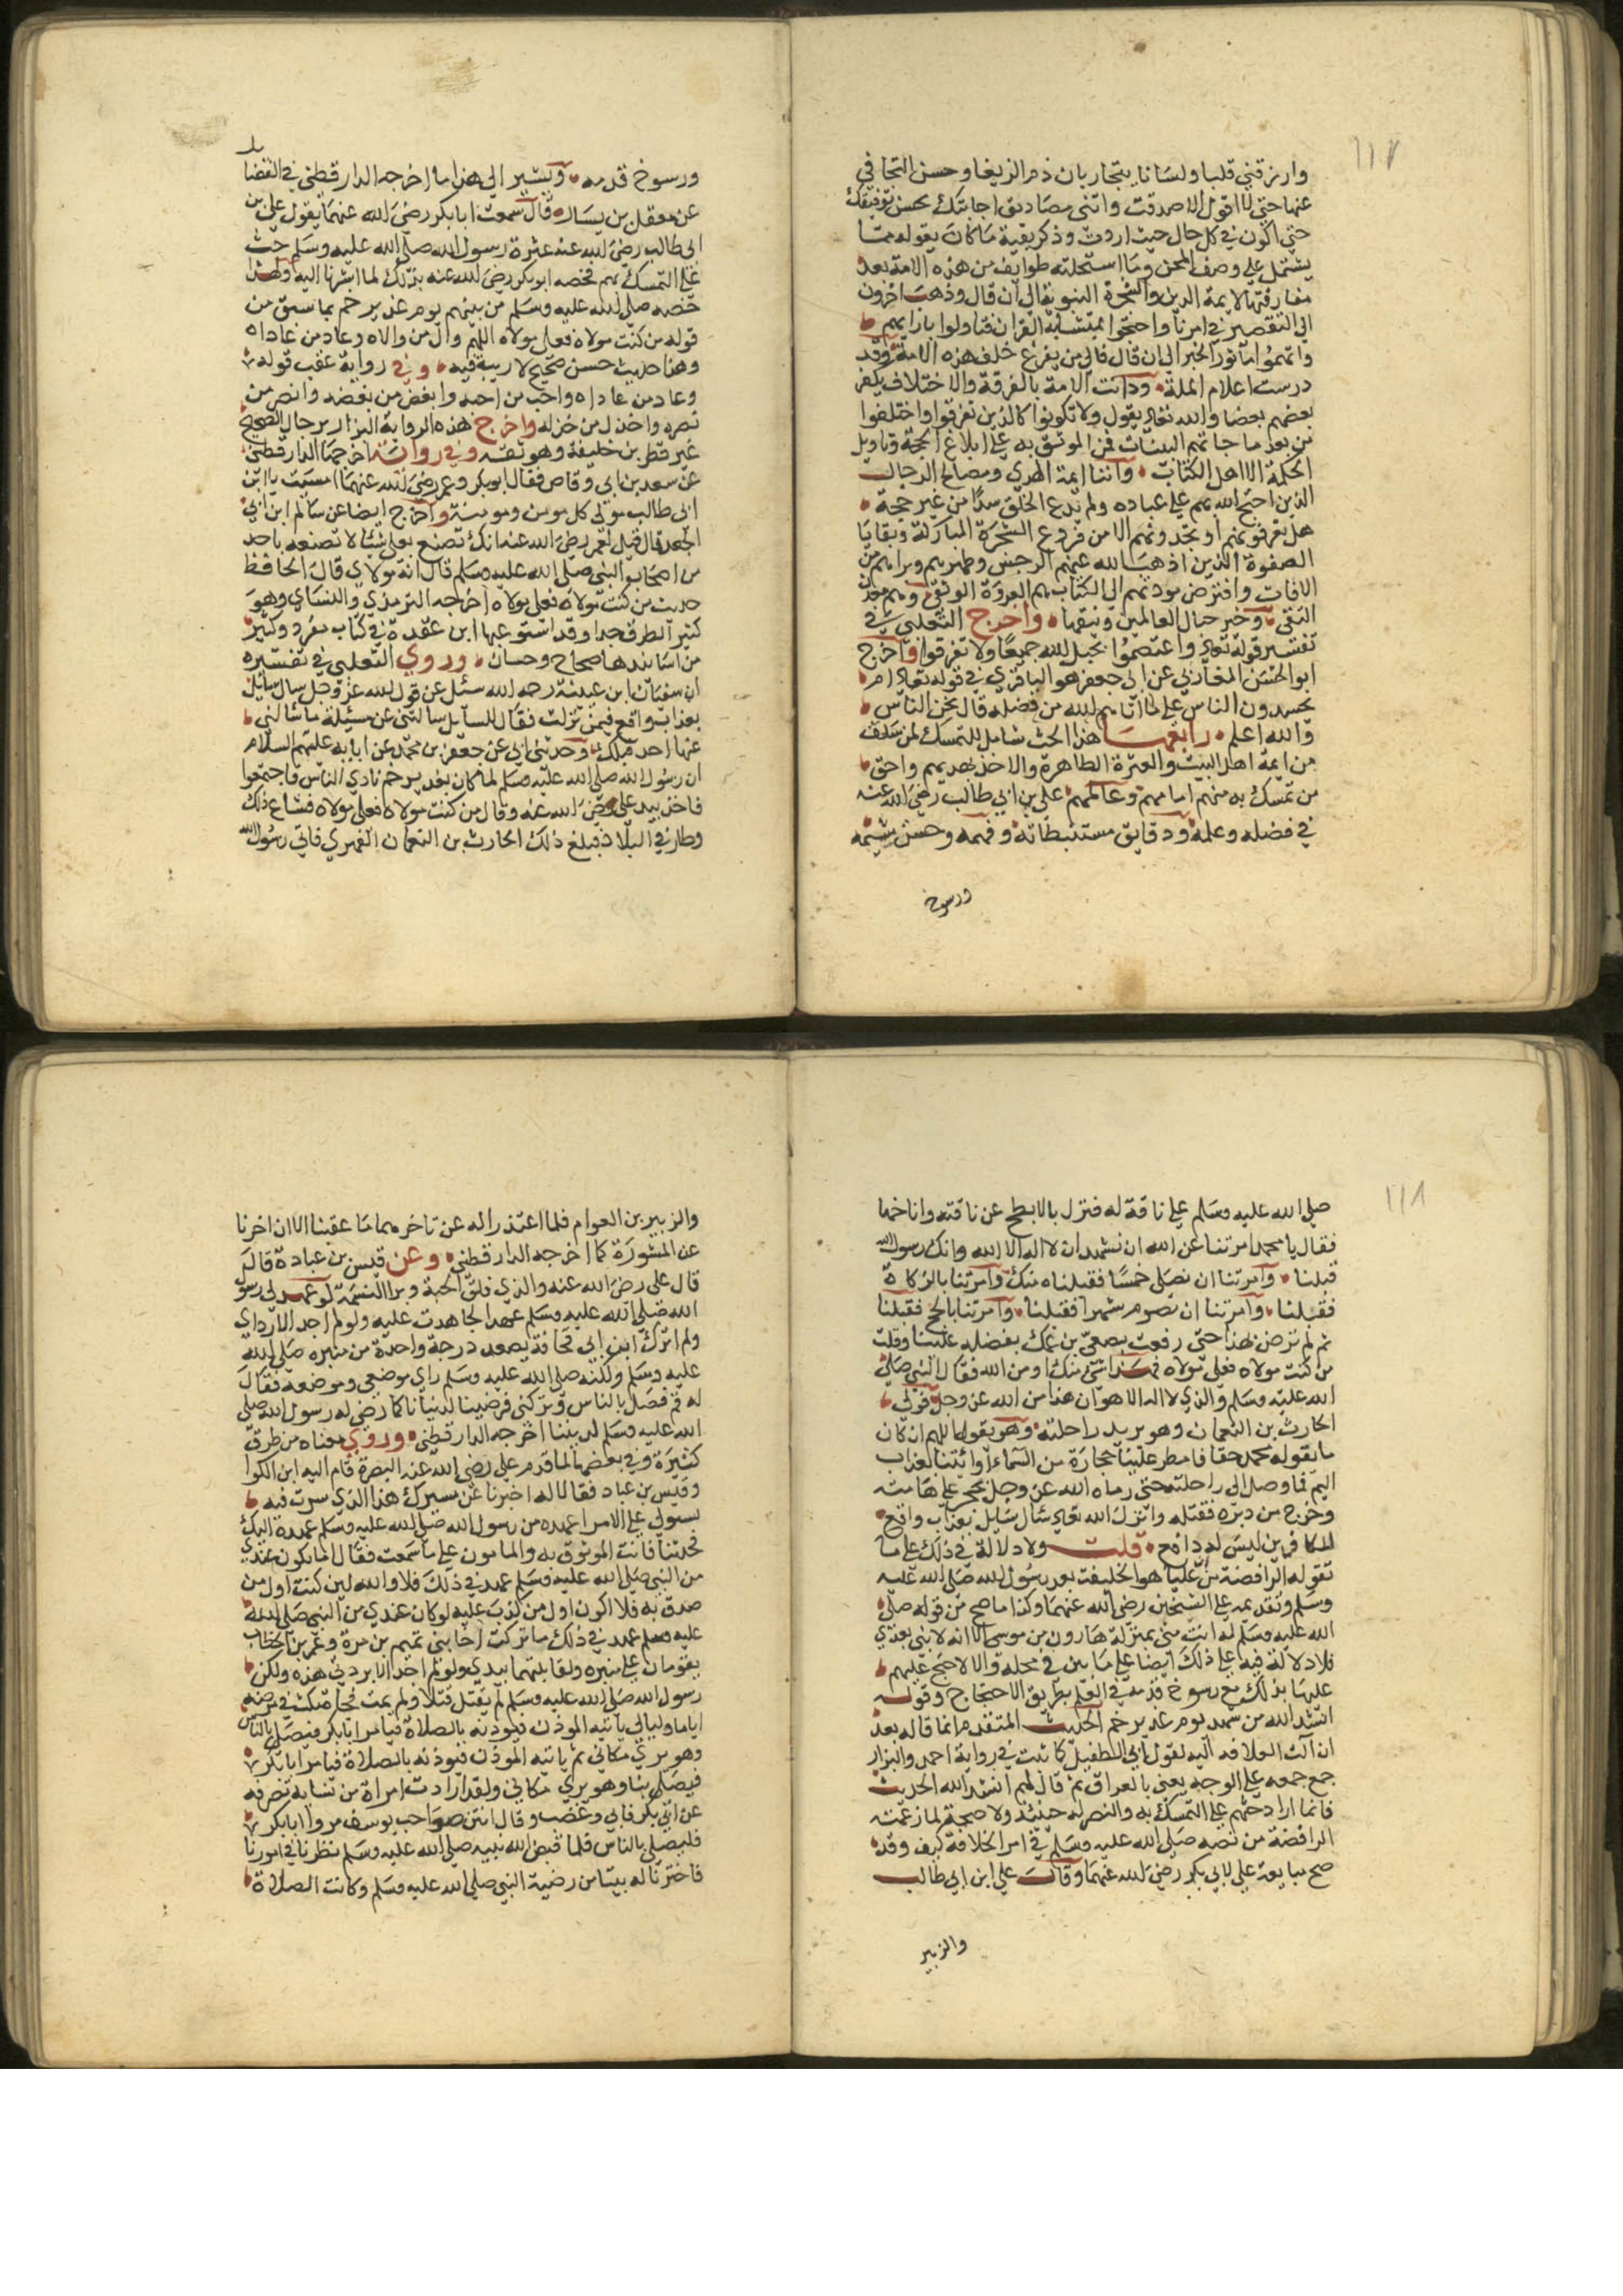 ١١٧
وارزقني قلبا ولسانا يتجاريان ذم الدنيا وحسن التجافي
عنها حتى لا اقول الا صدقت وانني مصاديق اجابتك بحسن توفيقك
حتى اكون في كل حال حيث اردت وذكر بقية ما كان يقوله مما
يشتمل على وصف المحن وما استحلته طوايف من هذه الامة بعد
مفارقتها لايمة الدين والشجرة النبوية الى ان قال وذهب اخرون
الى التقصير في امرنا واحتجوا بمتشابه القران فتاولوا بارايهم
واتهموا ماثور الخبر الى ان قال فالى من يفزع خلف هذه الامة وقد
درست اعلام الملة ودانت الامة بالفرقة والاختلاف يكفر
بعضهم بعضا والله تعالى يقول ولا تكونوا كالذين تفرقوا واختلفوا
من بعد ما جاتهم البينات فمن الموثوق به على ابلاغ الحجة وتاويل
الحكمة الا اهل الكتاب وابنا ايمة الهدى ومصابيح الدجا
الذين احتج الله بهم على عباده ولم يدع الخلق سدا من غير حجة
هل تعرفونهم او تجدونهم الا من فروع الشجرة المباركة وبقايا
الصفوة الذين اذهب الله عنهم الرجس وطهرهم وبراهم من
الافات وافترض مودتهم في الكتاب هم العروة الوثقى وهم معدن
التقى وخير حبال العالمين ونيقها واخرج الثعلبي في
تفسير قوله تعالى واعتصموا بحبل الله جميعا ولا تفرقوا واخرج
ابو الحسن المغازلي عن ابي جعفر هو الباقر في قوله تعالى ام
يحسدون الناس على ما اتاهم الله من فضله قال نحن الناس
والله اعلم رابعها هذا الحث شامل للتمسك لمن سلف
من ايمة اهل البيت والعترة الطاهرة والاخذ بهديهم واحق
من تمسك به منهم امامهم وعالمهم علي بن ابي طالب رضي الله عنه
في فضله وعلمه ودقايق مستنبطاته وفهمه وحسن شيمه
ورسوخ
ورسوخ قدمه ويشير الى هذا ما اخرجه الدارقطني في الفضايل
عن معقل بن يسار قال سمعت ابا بكر رضي الله عنهما يقول علي بن
ابي طالب رضي الله عنه عترة رسول الله صلى الله عليه وسلم حث
على التمسك بهم فخصه ابو بكر رضي الله عنه بذلك لما اشرنا اليه ولهذا
خصه صلى الله عليه وسلم من بينهم يوم غدير خم بما سبق من
قوله من كنت مولاه فعلي مولاه اللهم وال من والاه وعاد من عاداه
وهذا حديث حسن صحيح لا ريب فيه وفي رواية عقب قوله
وعاد من عاداه واحب من احبه وابغض من بغضه وانصر من
نصره واخذل من خذله واخرج هذه الرواية البزار برجال الصحيح
غير فطر بن خليفة وهو ثقة وفي رواية اخرجها الدارقطني
عن سعد بن ابي وقاص فقال ابو بكر وعمر رضي الله عنهما امسيت يا ابن
ابي طالب مولى كل مومن ومومنة واخرج ايضا عن سالم ابن ابي
الجعد قال قيل لعمر رضي الله عنه انك تصنع بعلي شيئا لا تصنعه باحد
من اصحاب النبي صلى الله عليه وسلم قال انه مولاي قال الحافظ
حديث من كنت مولاه فعلي مولاه اخرجه الترمذي والنساي وهو
كثير الطرق جدا وقد استوعبها ابن عقدة في كتاب مفرد وكثير
من اسانيدها صحاح وحسان وروى الثعلبي في تفسيره
ان سفيان ابن عيينة رحمه الله سئل عن قول الله عز وجل سال سايل
بعذاب واقع فيمن نزلت فقال للسايل سالتني عن مسئلة ما سالني
عنها احد قبلك وحدثني ابي عن جعفر بن محمد عن ابايه عليهم السلام
ان رسول الله صلى الله عليه وسلم لما كان بغدير خم نادى الناس فاجتمعوا
فاخذ بيد علي رضي الله عنه وقال من كنت مولاه فعلي مولاه فشاع ذلك
وطار في البلاد فبلغ ذلك الحارث بن النعمان الفهري فاتى رسول الله
١١٨
صلى الله عليه وسلم على ناقة له فنزل بالابطح عن ناقته واناخها
فقال يا محمد امرتنا عن الله ان نشهد ان لا اله الا الله وانك رسول الله
قبلنا وامرتنا ان نصلي خمسا فقبلناه منك وامرتنا بالزكاة
فقبلنا وامرتنا ان نصوم شهرا فقبلنا وامرتنا بالحج فقبلنا
ثم لم ترض بهذا حتى رفعت بضبعي بن عمك بفضله علينا وقلت
من كنت مولاه فعلي مولاه فهذا شئ منك او من الله فقال النبي صلى
الله عليه وسلم والذي لا اله الا هو ان هذا من الله عز وجل فولى
الحارث بن النعمان وهو يريد راحلته وهو يقول اللهم ان كان
ما يقوله محمد حقا فامطر علينا حجارة من السماء او ائتنا بعذاب
اليم فما وصل الى راحلته حتى رماه الله عز وجل بحجر على هامته
وخرج من دبره فقتله وانزل الله تعالى سال سايل بعذاب واقع
للكافرين ليس له دافع قلت ولا دلالة في ذلك على ما
تقوله الرافضة من ان عليا هو الخليفة بعد رسول الله صلى الله عليه
وسلم وتقديمه على الشيخين رضي الله عنهما وكذا ما صح من قوله صلى
الله عليه وسلم له انت مني بمنزلة هارون من موسى الا انه لا نبي بعدي
فلا دلالة فيه على ذلك ايضا على ما بين في محله والا لاحتج عليهم
عليها بذلك مع رسوخ قدمه في العلم بطريق الاحتجاج وقوله
انشد الله من شهد يوم غدير خم الحديث المتقدم انما قاله بعد
ان الت الخلافة اليه لقول ابي الطفيل كما ثبت في رواية احمد والبزار
جمع جمعه على الوجه يعني بالعراق ثم قال لهم انشد الله الحديث
فانما اراد حثهم على التمسك به والنصر له حينئذ ولا حجة لما زعمته
الرافضة من نصه صلى الله عليه وسلم في امر الخلافة كيف وقد
صح مبايعة علي لابي بكر رضي الله عنهما وقال علي ابن ابي طالب
والزبير
والزبير بن العوام فلما اعتذرا له عن تاخرهما ما عقبنا الا ان اخرنا
عن المشورة كما اخرجه الدارقطني وعن قيس بن عبادة قال
قال علي رضي الله عنه والذي فلق الحبة وبرا النسمة لو عهد لي رسول
الله صلى الله عليه وسلم عهدا لجاهدت عليه ولو لم اجد الا رداي
ولم اترك ابن ابي قحافة يصعد درجة واحدة من منبره صلى الله
عليه وسلم ولكنه صلى الله عليه وسلم راى موضعي وموضعه فقال
له قم فصل بالناس وتركني فرضينا لدنيانا كما رضي له رسول الله صلى
الله عليه وسلم لديننا اخرجه الدارقطني وروي معناه من طرق
كثيرة وفي بعضها لما قدم علي رضي الله عنه البصرة قام اليه ابن الكوا
وقيس بن عباد فقالا له اخبرنا عن مسيرك هذا الذي سرت فيه
على الامر اعهد من رسول الله صلى الله عليه وسلم عهده اليك
فحدثنا فانت الموثوق به والمامون على ما سمعت فقال اما يكون عندي
من النبي صلى الله عليه وسلم عهد في ذلك فلا والله لين كنت اول من
صدق به فلا اكون اول من كذب عليه لو كان عندي من النبي صلى الله
عليه وسلم عهد في ذلك ما تركت اخا بني تميم بن مرة وعمر بن الخطاب
يقومان على منبره ولقاتلتهما بيدي ولو لم اجد الا بردتي هذه ولكن
رسول الله صلى الله عليه وسلم لم يقتل قتلا ولم يمت فجاة مكث في مرضه
اياما وليالي ياتيه الموذن فيوذنه بالصلاة فيامر ابا بكر فيصلي بالناس
وهو يرى مكاني ثم ياتيه الموذن فيوذنه بالصلاة فيامر ابا بكر
فيصلي بنا وهو يرى مكاني ولقد ارادت امراة من نسايه تصرفه
عن ابي بكر فابى وغضب وقال انتن صواحب يوسف مروا ابا بكر
فليصلي بالناس فلما قبض الله نبيه صلى الله عليه وسلم نظرنا في امورنا
فاخترنا له بيتا من رضية النبي صلى الله عليه وسلم وكانت الصلاة